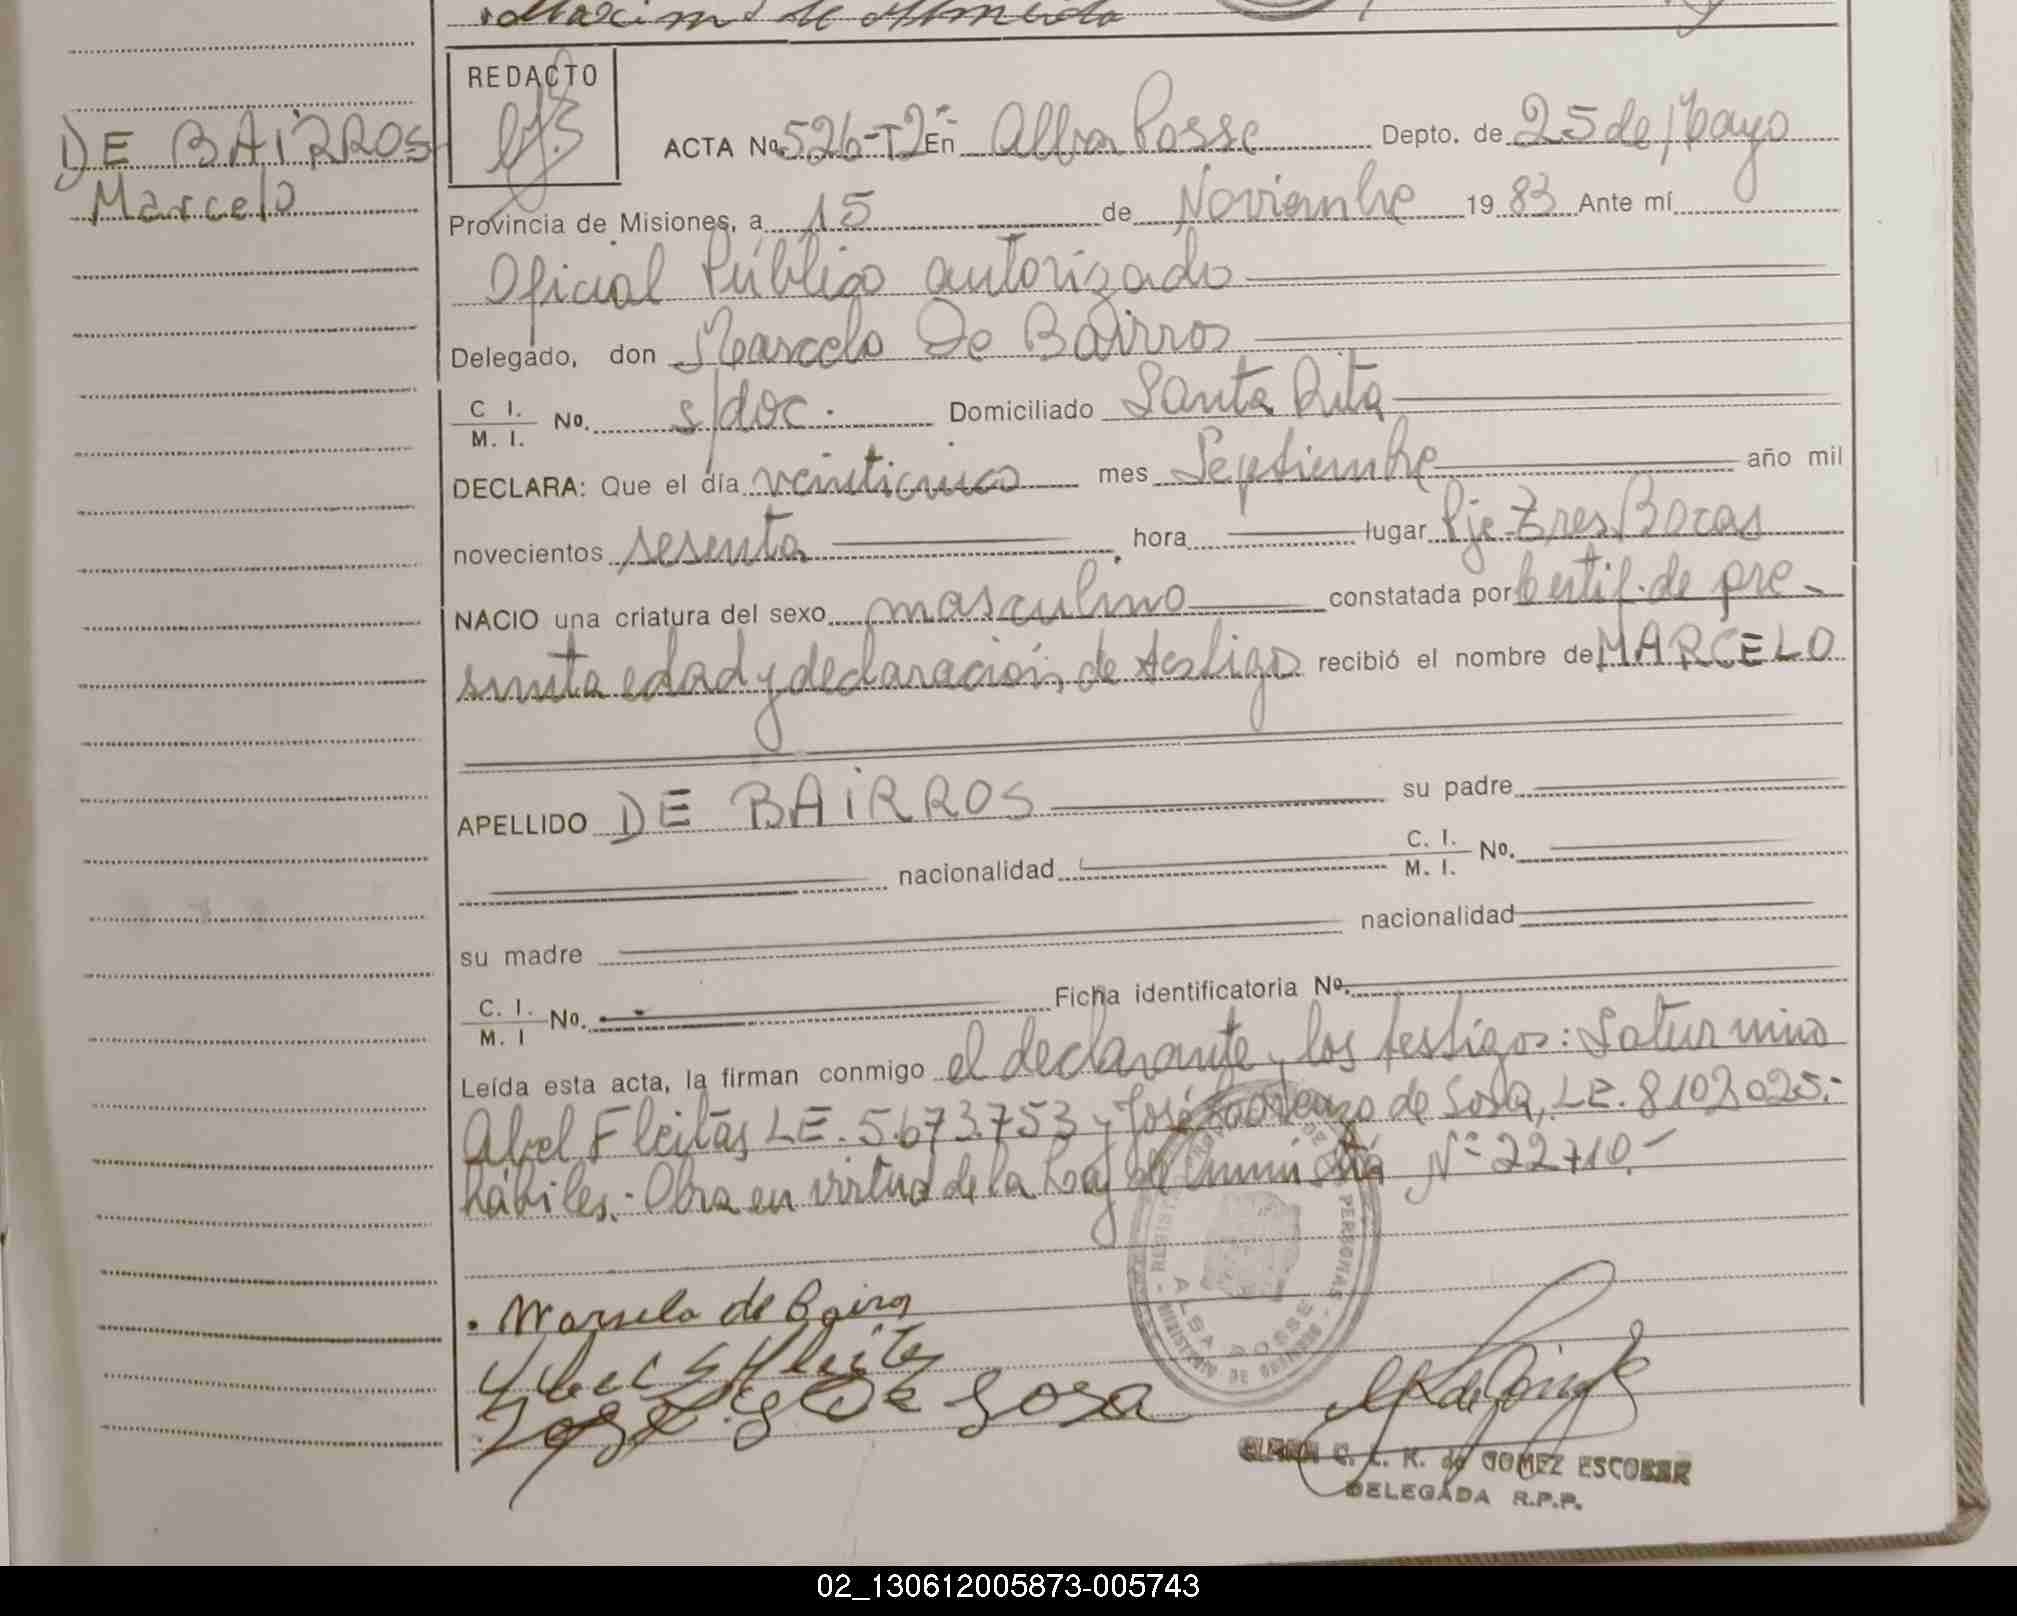 Maximo de Almeida
REDACTO
DE BAIRROS
Marcelo
ACTA No. 526-T2º En Alba Posse Depto. de 25 de Mayo
Provincia de Misiones, a 15 de Noviembre 19 83 Ante mí
Oficial Público autorizado
Delegado, don Marcelo De Bairros
C I. / M. I. No. s/doc. Domiciliado Santa Rita
DECLARA: Que el día veinticinco mes Septiembre año mil
novecientos sesenta hora lugar Pje Tres Bocas
NACIO una criatura del sexo masculino constatada por Certif. de pre-
sunta edad y declaración de testigo recibió el nombre de MARCELO
APELLIDO DE BAIRROS su padre
nacionalidad C. I. / M. I. No.
su madre nacionalidad
C. I. / M. I No. Ficha identificatoria No.
Leída esta acta, la firman conmigo el declarante y los testigos: Saturnino
Abel Fleitas LE. 5.673.753 y José de Sosa, LE. 8102025.-
hábiles.- Obra en virtud de la Ley de Amnistía Nº 22710.-
REGISTRO PROVINCIAL DE PERSONAS
ALBA POSSE
MINISTERIO DE GOBIERNO
Marselo de Bairos
De Sosa
C. L. K. de GOMEZ ESCOBAR
DELEGADA R.P.P.
02_130612005873-005743